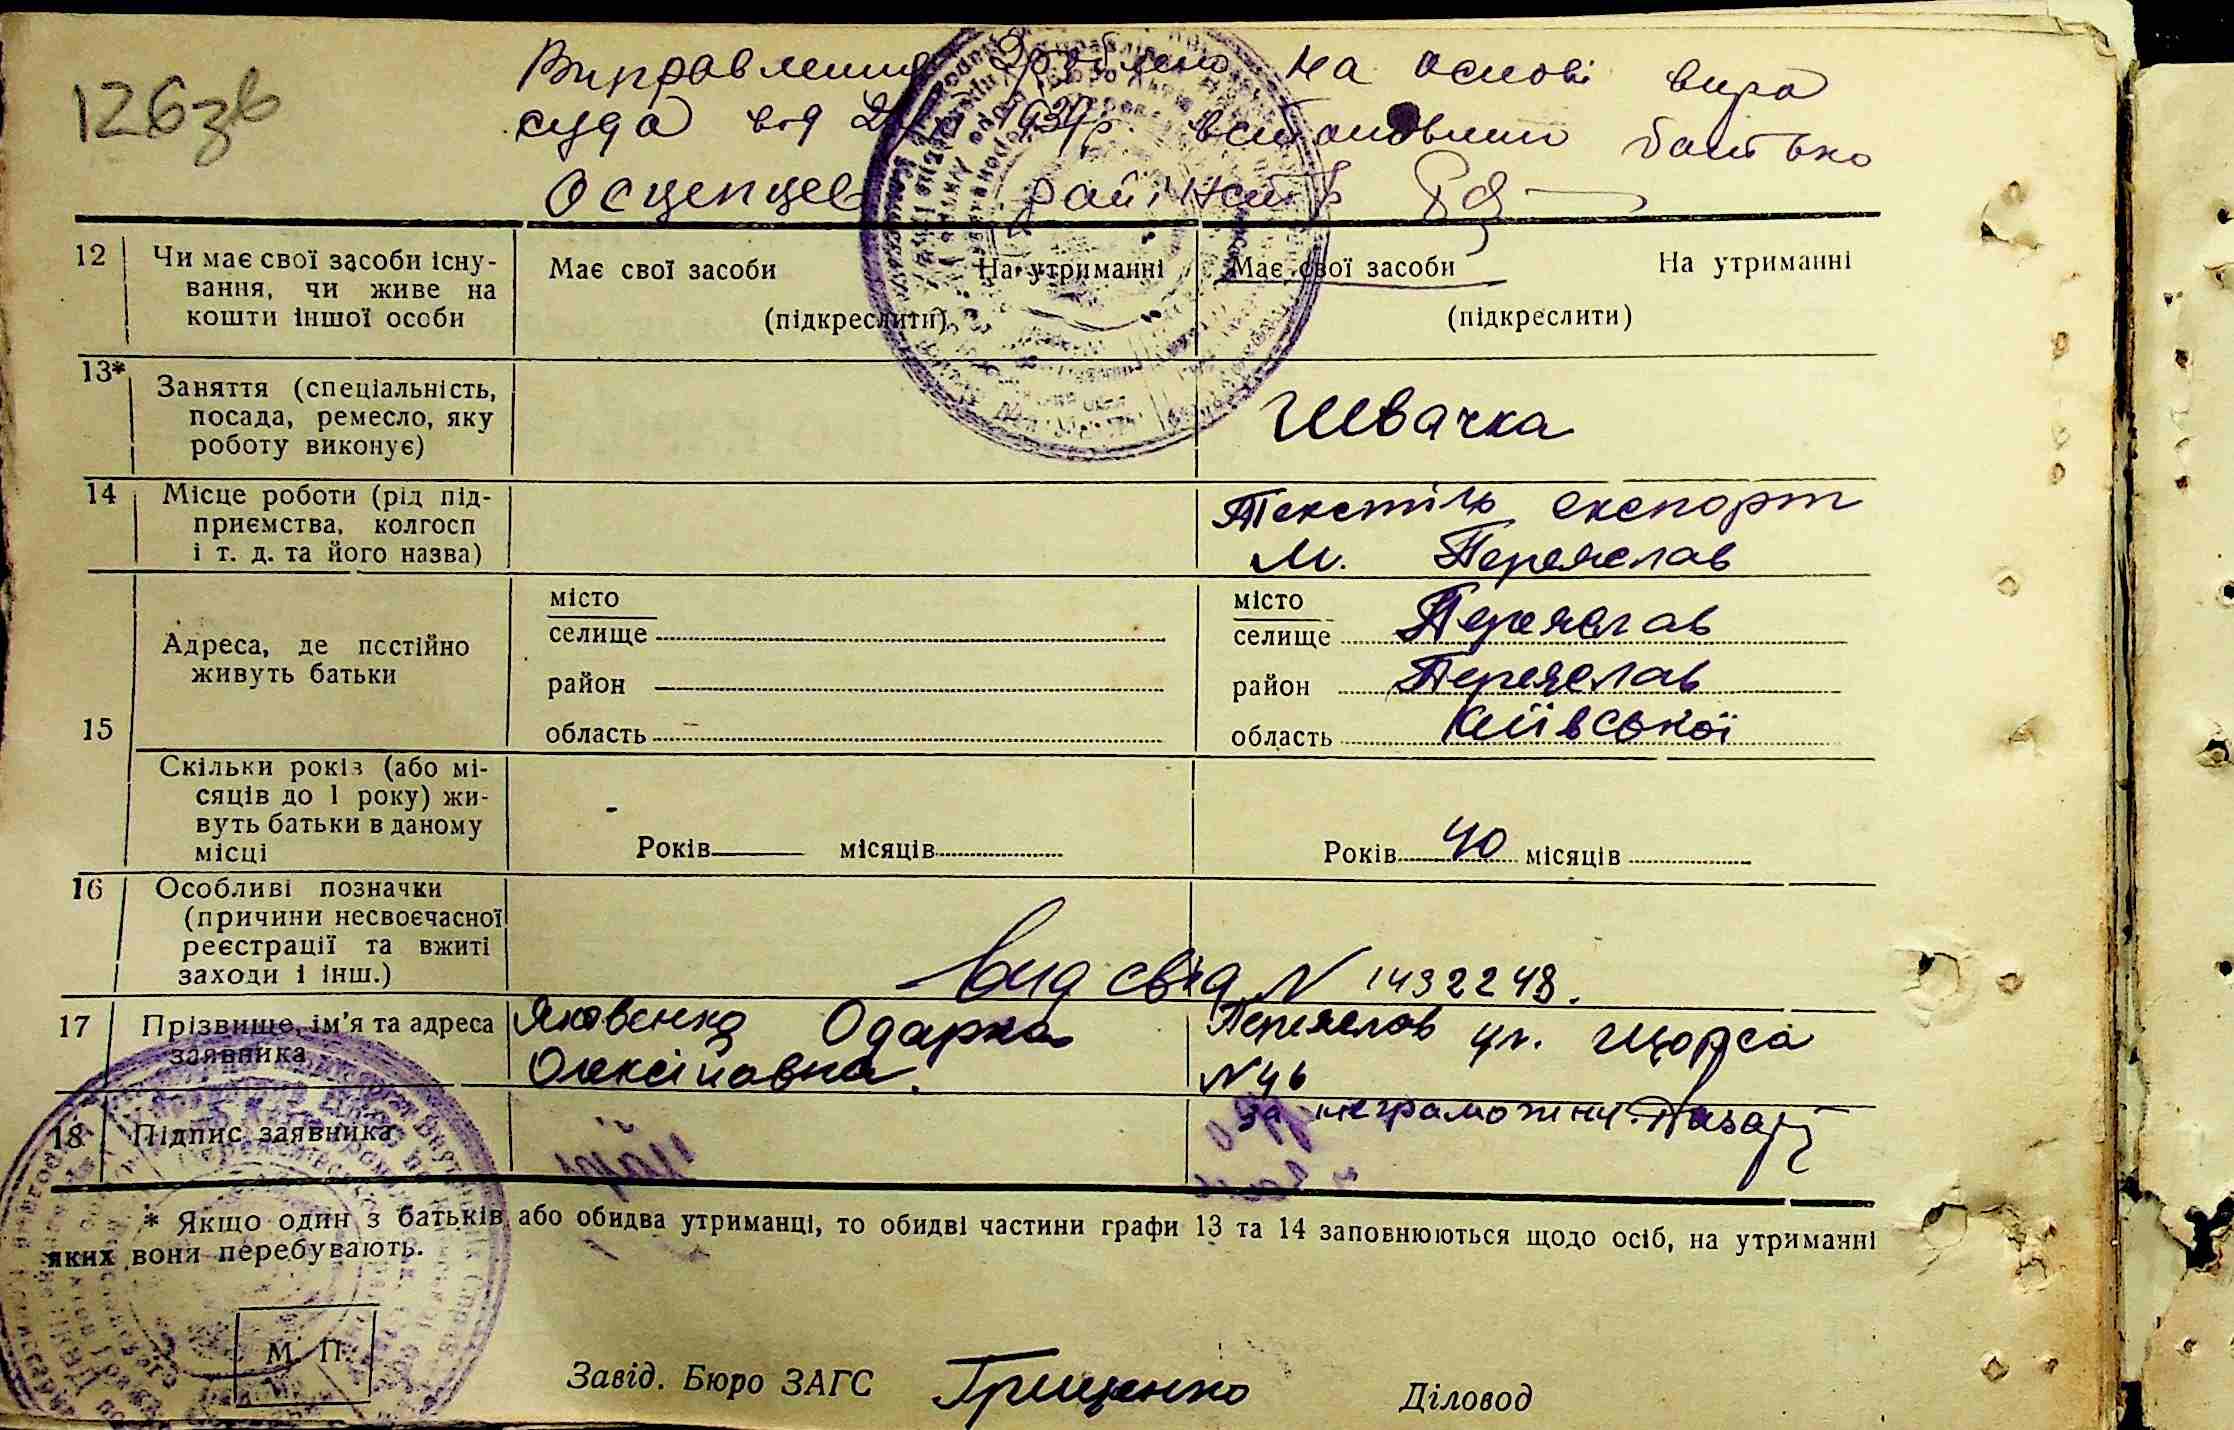 126зв
Виправлення зроблено на основі
суда від 193 р. встановлено батько
12 Чи має свої засоби існу-
вання, чи живе на
кошти іншої особи
Має свої засоби На утриманні
(підкреслити)
Має свої засоби На утриманні
(підкреслити)
13* Заняття (спеціальність,
посада, ремесло, яку
роботу виконує)
Швачка
14 Місце роботи (рід під-
приємства, колгосп
і т. д. та його назва)
Текстіль експорт
м. Переяслав
15 Адреса, де постійно
живуть батьки
місто
селище
район
область
місто
селище Переяслав
район Переяслав
область Київської
Скільки років (або мі-
сяців до 1 року) жи-
вуть батьки в даному
місці
Років місяців
Років 40 місяців
16 Особливі позначки
(причини несвоєчасної
реєстрації та вжиті
заходи і інш.)
вид свід N 1432248.
17 Прізвище, ім'я та адреса
заявника
Яковенко Одарка
Олексіївна.
Переяслав ул. Щорса
N 46
18 Підпис заявника
за неграмотну
* Якщо один з батьків або обидва утриманці, то обидві частини графи 13 та 14 заповнюються щодо осіб, на утриманні
яких вони перебувають.
М. П.
Завід. Бюро ЗАГС Грищенко Діловод